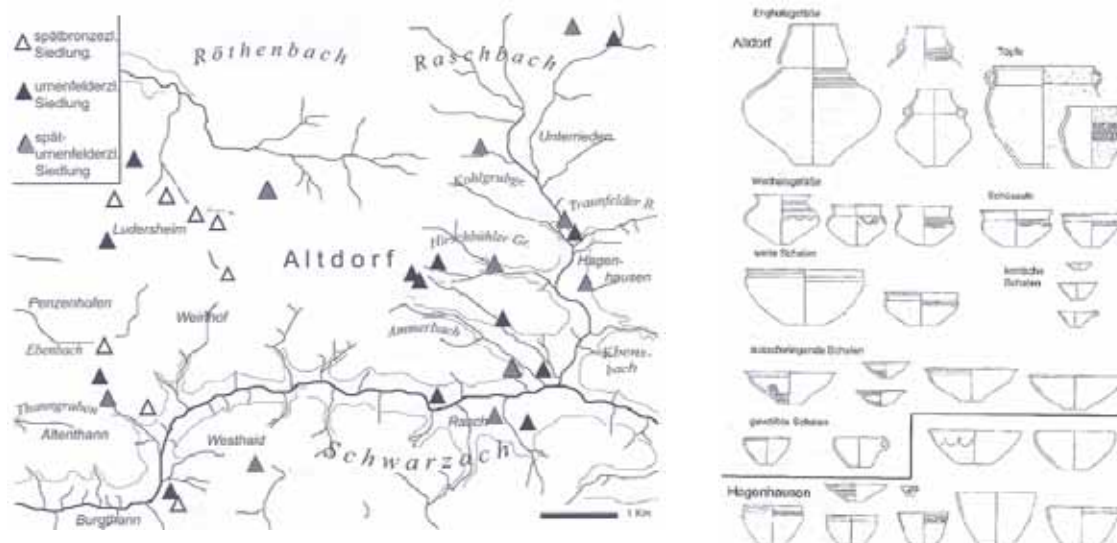 spätbronzezl.
Siedlung.
urnenfelderzl.
Siedlung
spät-
urnenfelderzl.
Siedlung
Röthenbach
Raschbach
Unterrieden
Kohlgrubge
Traunfelder R
Ludersheim
Hirschbühler Ge.
Altdorf
Hagen-
hausen
Penzenhofen
Weinhof
Ebenbach
Ammerbach
Ebens-
bach
Thanngraben
Altenthann
Westhaid
Rasch
Schwarzach
Burgthann
1 Km
Enghalsgefäße
Altdorf
Töpfe
Schüsseln
weite Schalen
konische
Schalen
ausschwingende Schalen
gewölbte Schalen
Hagenhausen